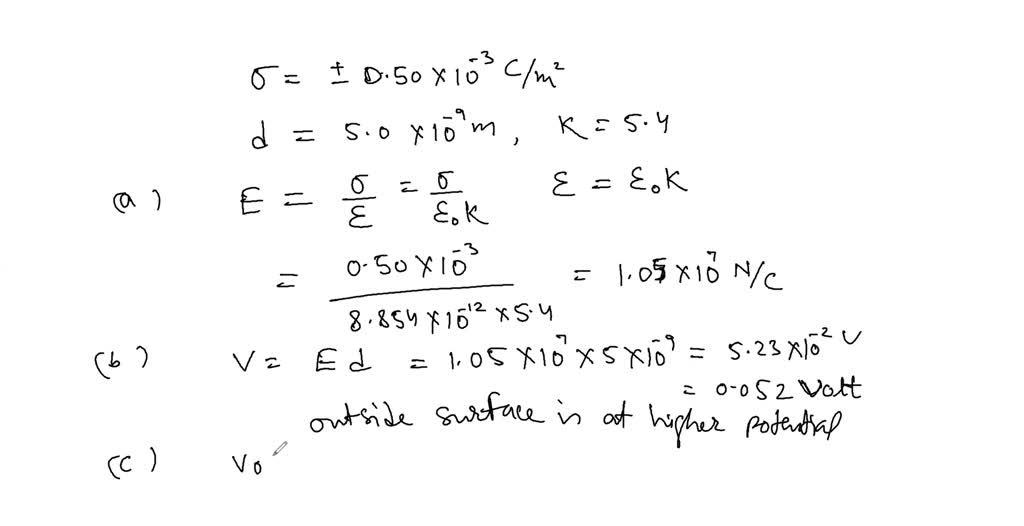 σ = ± 0.50 × 10⁻³ C/m²
d = 5.0 × 10⁻⁹ m, K = 5.4
(a) E = σ/ε = σ/ε₀K ε = ε₀K
= 0.50 × 10⁻³ / 8.854 × 10⁻¹² × 5.4 = 1.05 × 10⁷ N/C
(b) V = Ed = 1.05 × 10⁷ × 5 × 10⁻⁹ = 5.23 × 10⁻² V
= 0.052 Volt
outside surface is at higher potential
(c) Vo